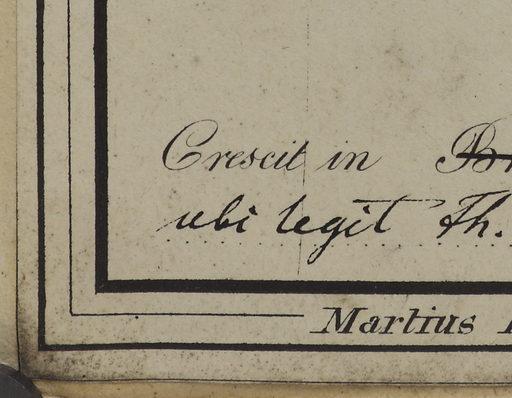 Crescit in
ubi legit Th.
Martius